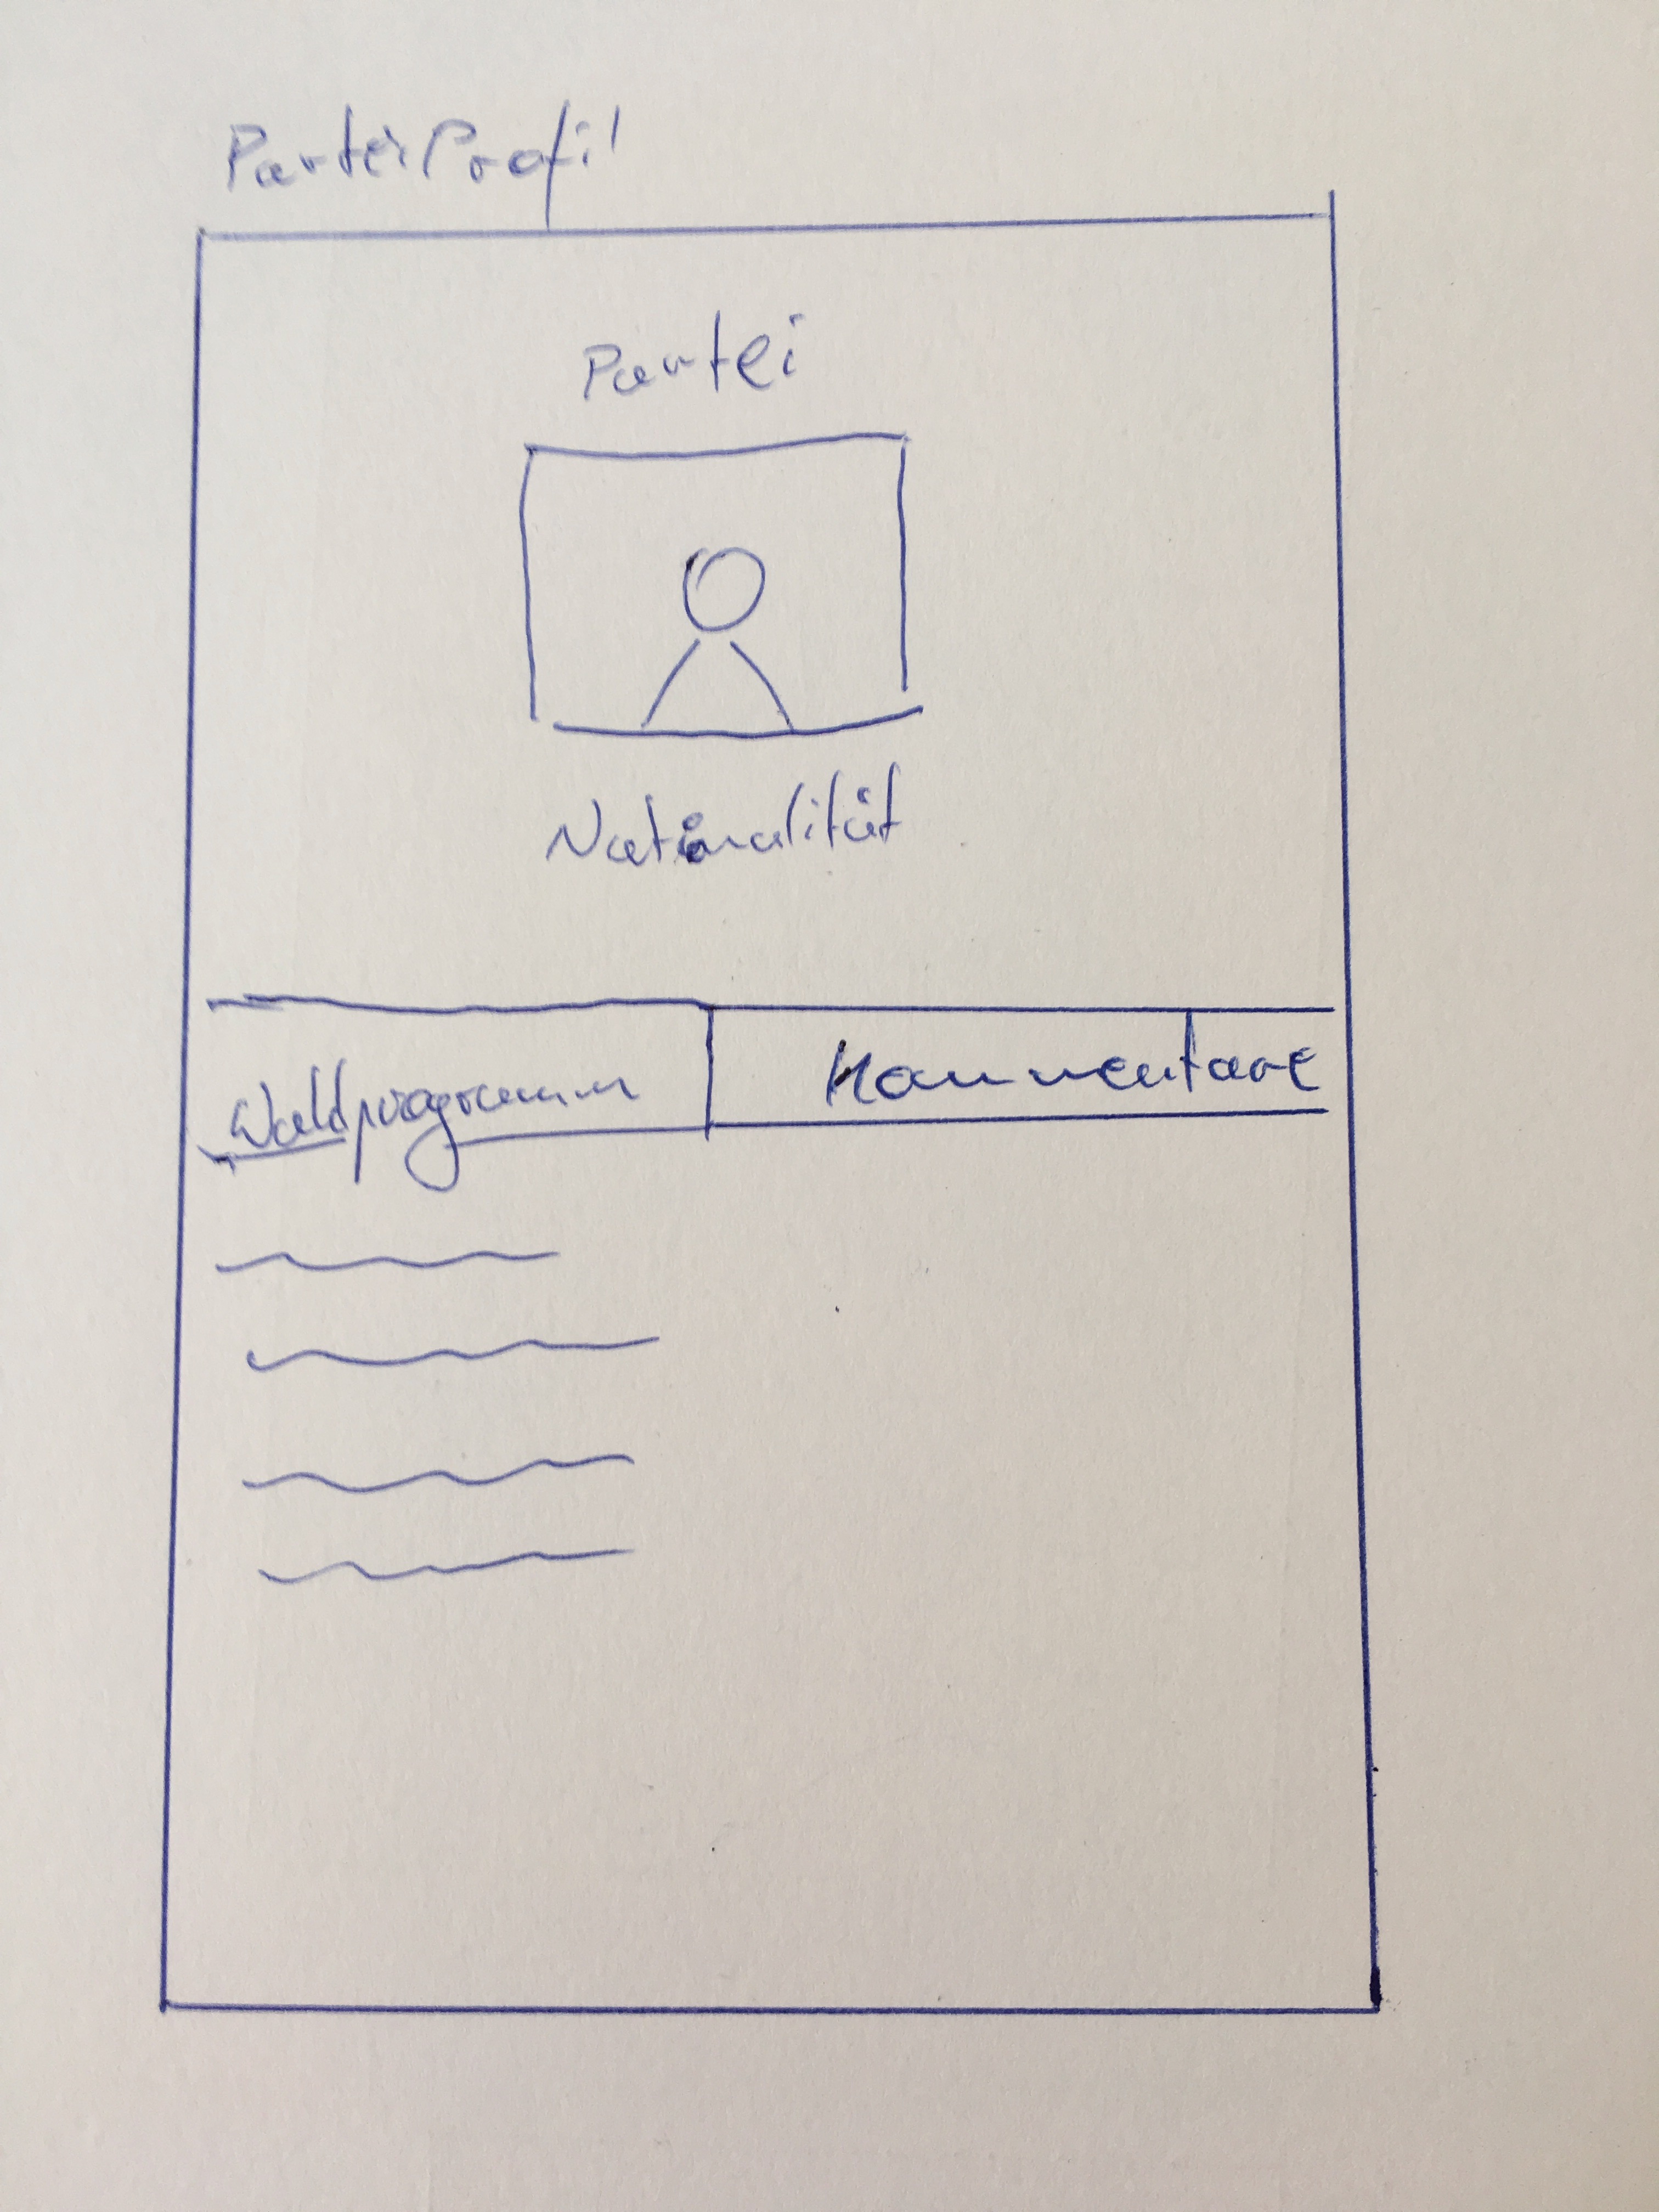 Partei Profil
Partei
Nationalität
Wahlprogramm
Kommentare